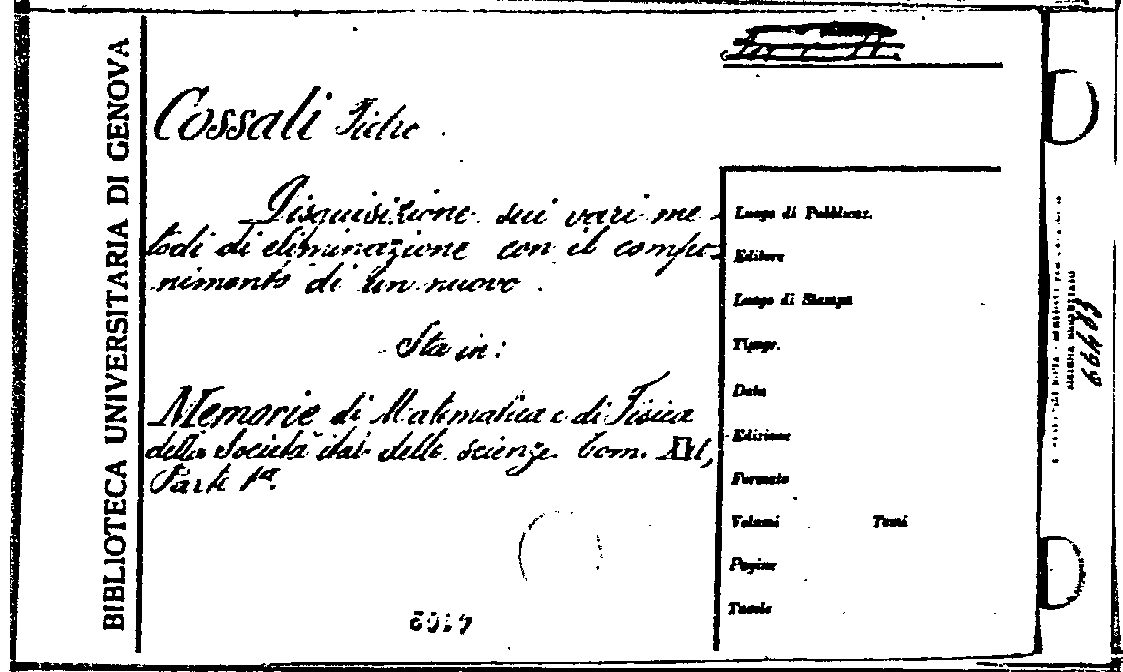 BIBLIOTECA UNIVERSITARIA DI GENOVA
Cossali Pietro.
Disquisizione sui vari me-
todi di eliminazione con il compo-
nimento di un nuovo.
Sta in:
Memorie di Matematica e di Fisica
della Società ital. delle scienze. Tom. XVI,
Parte 1ª.
Luogo di Pubblicaz.
Editore
Luogo di Stampa
Tipogr.
Data
Edizione
Formato
Volumi Tomi
Pagine
Tavole